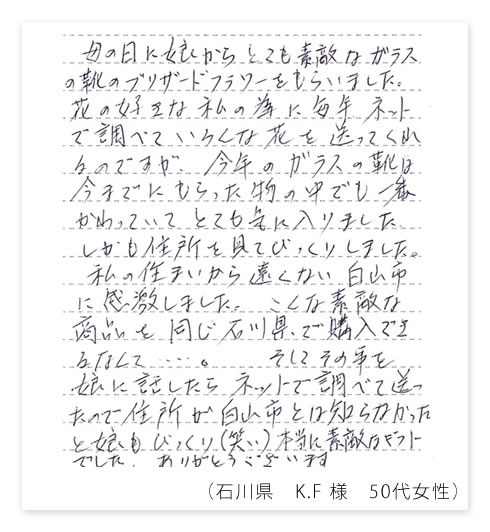 母の日に娘からとても素敵なガラス
の靴のブリザードフラワーをもらいました。
花の好きな私の為に毎年ネット
で調べていろんな花を送ってくれ
るのですが、今年のガラスの靴は
今までにもらった物の中でも一番
かわっていてとても気に入りました
しかも住所を見てびっくりしました。
私の住まいから遠くない白山市
に感激しました。こんな素敵な
商品を同じ石川県で購入でき
るなんて・・・・。そしてその事を
娘に話したらネットで調べて送っ
たので住所が白山市とは知らなかった
と娘もびっくり(笑い)本当に素敵なギフト
でした。ありがとうございます
（石川県　K.F 様　50代女性）